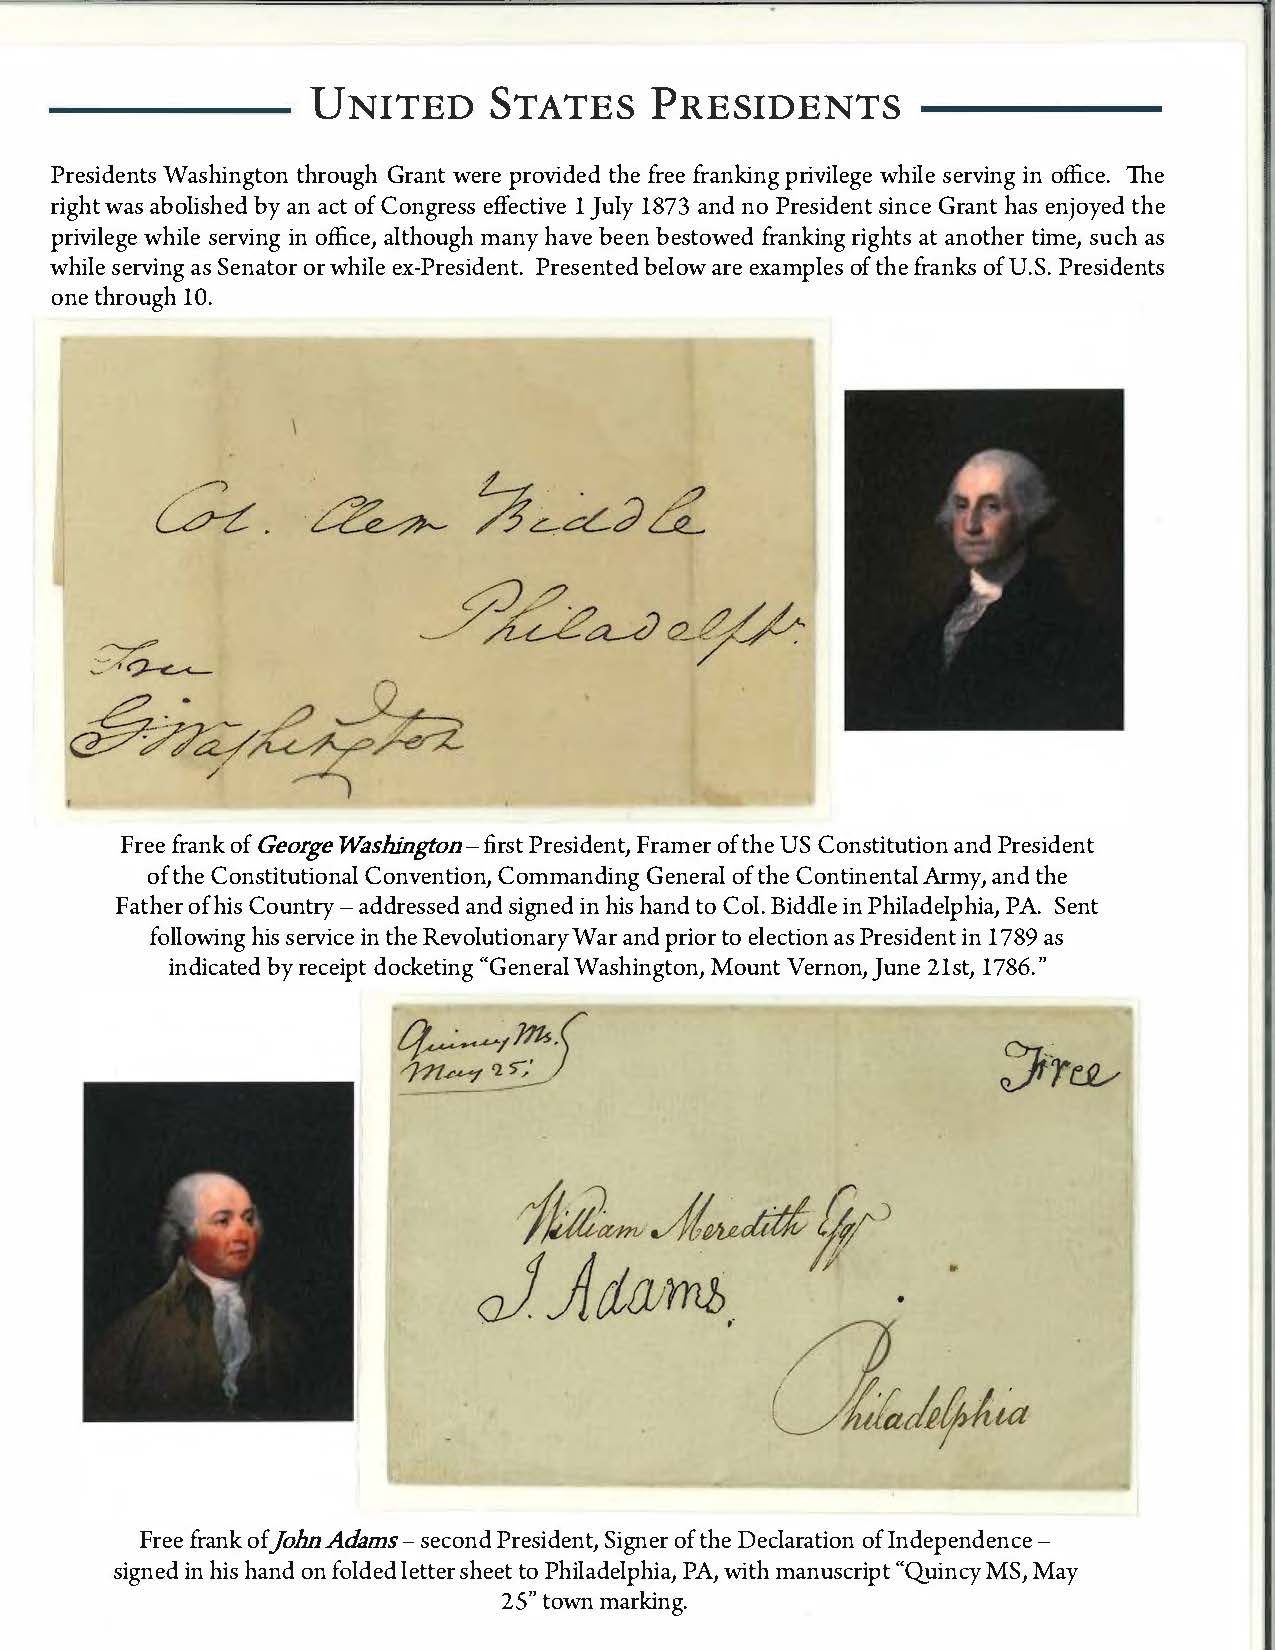 UNITED STATES PRESIDENTS
Presidents Washington through Grant were provided the free franking privilege while serving in office. The
right was abolished by an act of Congress effective 1 July 1873 and no President since Grant has enjoyed the
privilege while serving in office, although many have been bestowed franking rights at another time, such as
while serving as Senator or while ex-President. Presented below are examples of the franks of U.S. Presidents
one through 10.
Col. Clem Biddle
Philadelpha.
Free
G:Washington
Free frank of George Washington – first President, Framer of the US Constitution and President
of the Constitutional Convention, Commanding General of the Continental Army, and the
Father of his Country – addressed and signed in his hand to Col. Biddle in Philadelphia, PA. Sent
following his service in the Revolutionary War and prior to election as President in 1789 as
indicated by receipt docketing “General Washington, Mount Vernon, June 21st, 1786.”
Quincy Ms.
May 25;
Free
William Meredith Esqr
J. Adams.
Philadelphia
Free frank of John Adams – second President, Signer of the Declaration of Independence –
signed in his hand on folded letter sheet to Philadelphia, PA, with manuscript “Quincy MS, May
25” town marking.